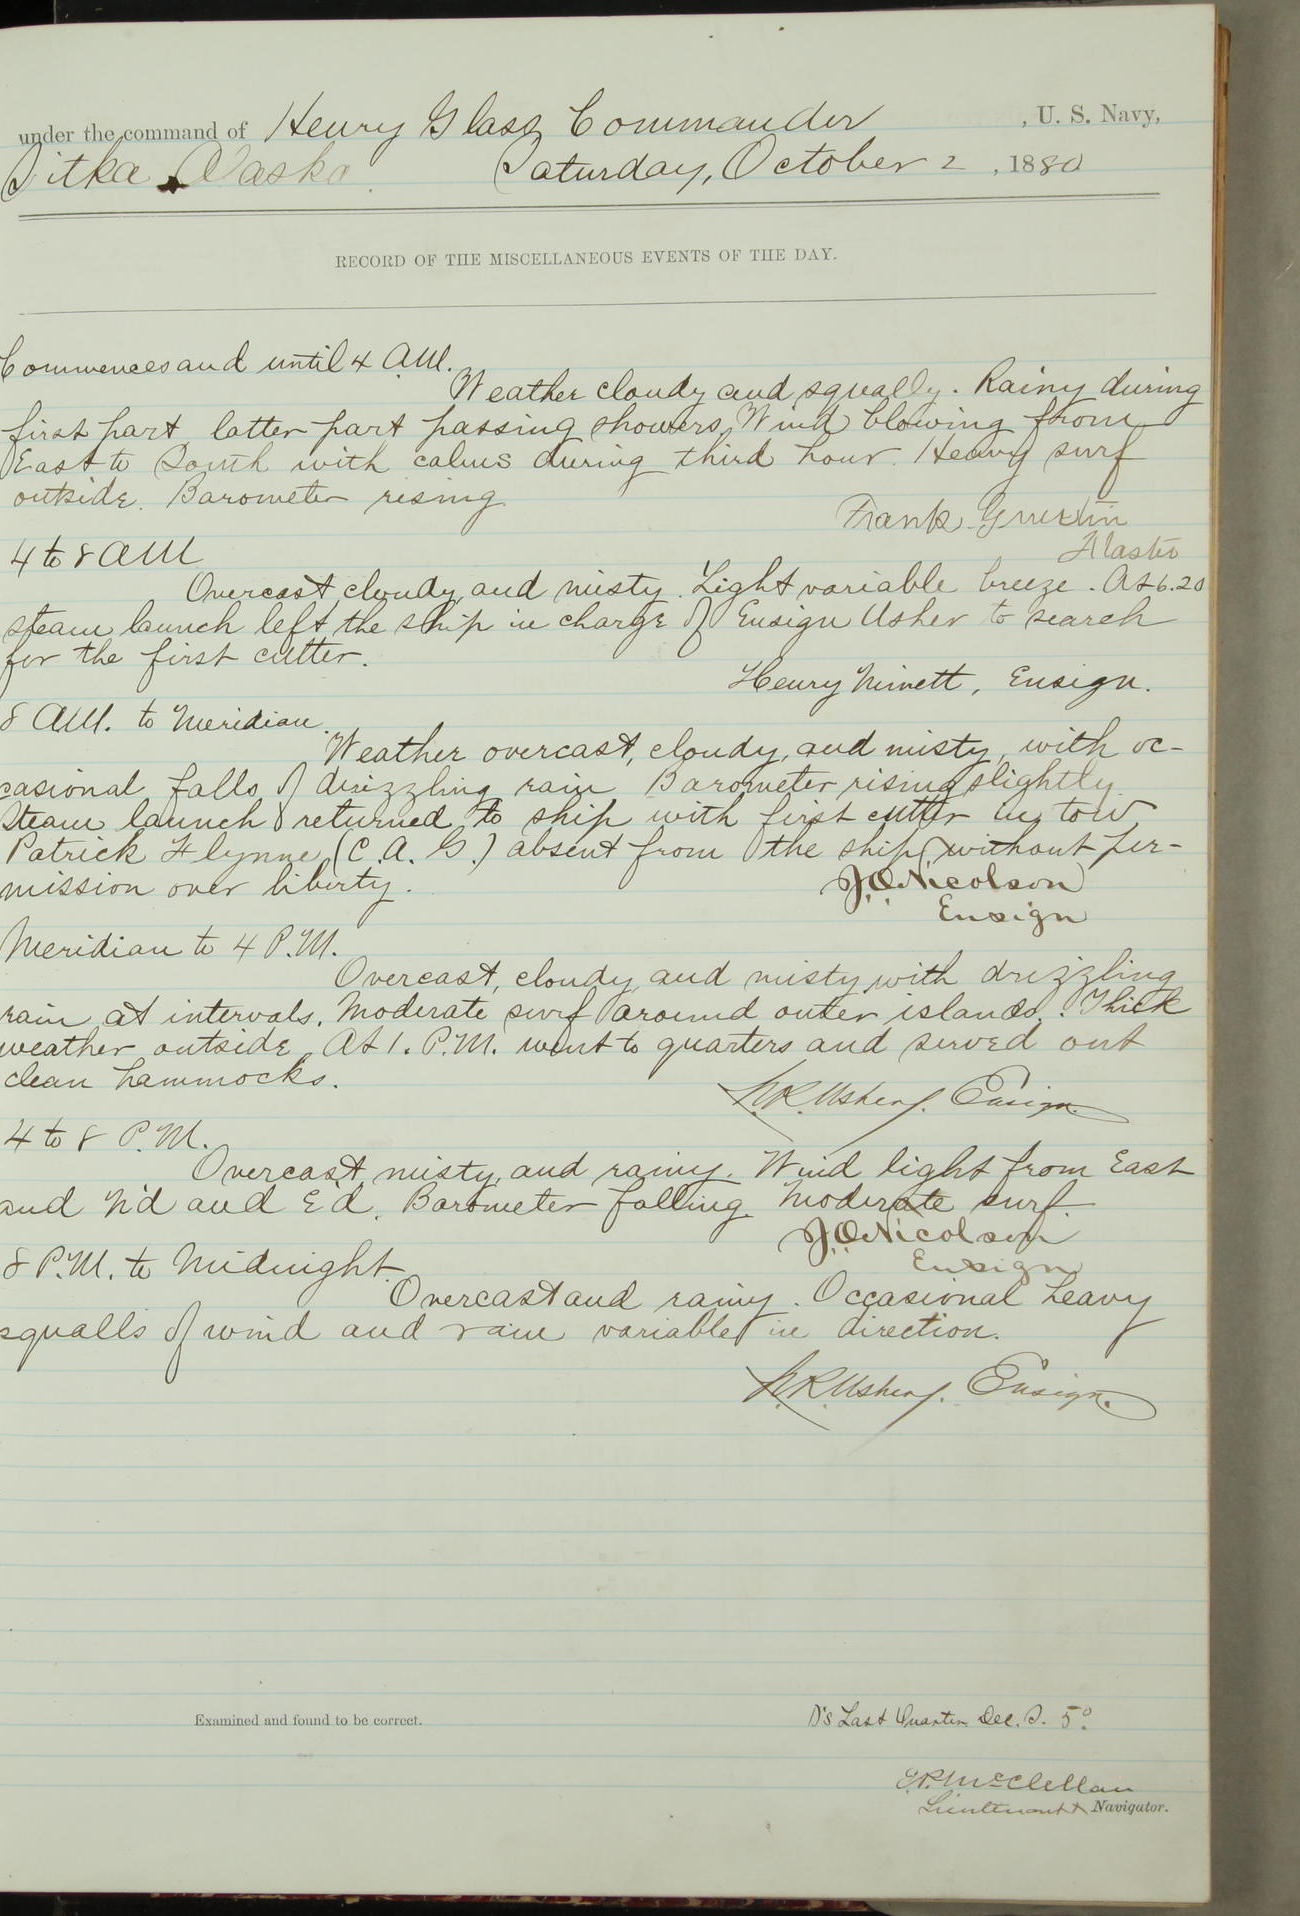 under the command of Henry Glass Commander , U. S. Navy,
Sitka Alaska. Saturday, October 2 , 1880
RECORD OF THE MISCELLANEOUS EVENTS OF THE DAY.
Commences and until 4 A.M.
Weather cloudy and squally. Rainy during
first part, latter part passing showers, Wind blowing from
East to South with calms during third hour. Heavy surf
outside. Barometer rising.
Frank
Master
4 to 8 AM
Overcast, cloudy, and misty. Light variable breeze. At 6.20
steam launch left the ship in charge of Ensign Usher to search
for the first cutter.
Henry Minett, Ensign.
8 AM. to Meridian.
Weather overcast, cloudy, and misty, with oc-
casional falls of drizzling rain Barometer rising slightly.
Steam launch returned to ship with first cutter in tow
Patrick Flynne (C. A. G.) absent from the ship without per-
mission over liberty.
J.O. Nicolson
Ensign
Meridian to 4 P.M.
Overcast, cloudy, and misty with drizzling
rain at intervals. Moderate surf around outer islands. Thick
weather outside. At 1. P.M. went to quarters and served out
clean hammocks.
N.R. Usher. Ensign.
4 to 8 P.M.
Overcast, misty, and rainy. Wind light from East
and N'd and E'd. Barometer falling. Moderate surf.
J.O. Nicolson
Ensign
8 P.M. to Midnight.
Overcast and rainy. Occasional heavy
squalls of wind and rain variable in direction.
N.R. Usher. Ensign.
Examined and found to be correct.
D's Last Quarter Dec. S. 5°
McClellan
Lieutenant Navigator.